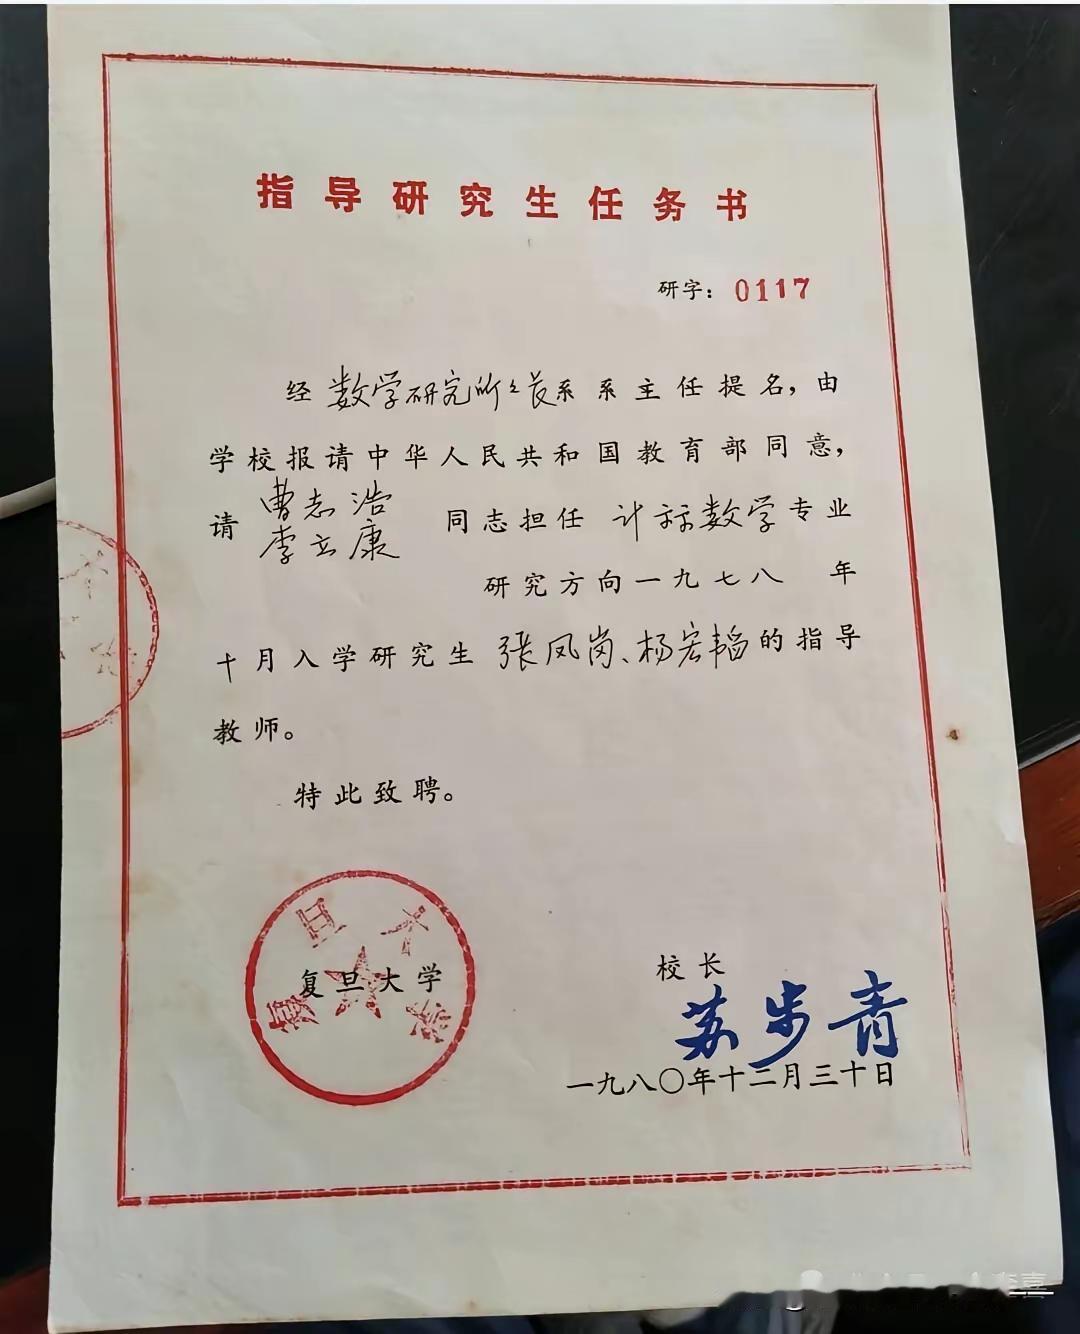 指导研究生任务书
研字：0117
经数学研究所所长系系主任提名，由
学校报请中华人民共和国教育部同意，
请 曹志浩 李立康 同志担任 计算数学专业
研究方向一九七八 年
十月入学研究生 张凤岗、杨宏韬的指导
教师。
特此致聘。
复旦大学
复旦大学
校长
苏步青
一九八〇年十二月三十日